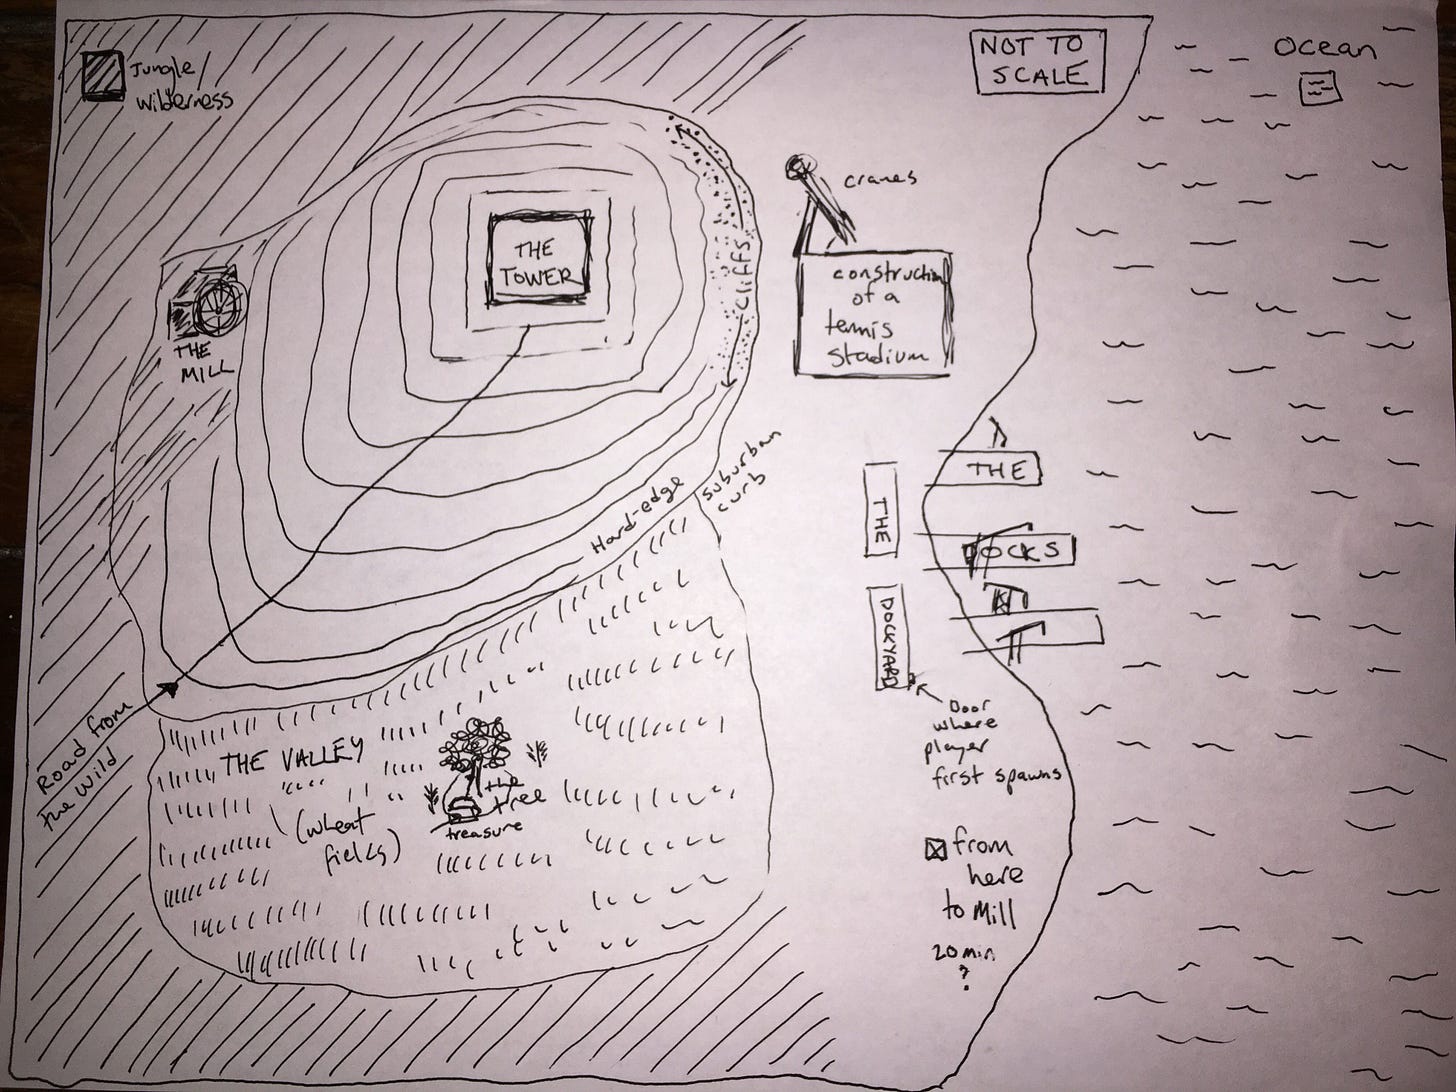 Jungle/
Wilderness
NOT TO
SCALE
Ocean
cranes
THE
TOWER
cliffs
construction
of a
tennis
stadium
THE
MILL
suburban
curb
Hard-edge
THE
THE
DOCKS
DOCKYARD
Door
where
player
first spawns
Road from
the wild
THE VALLEY
(wheat
fields)
the
tree
treasure
from
here
to Mill
20 min
?